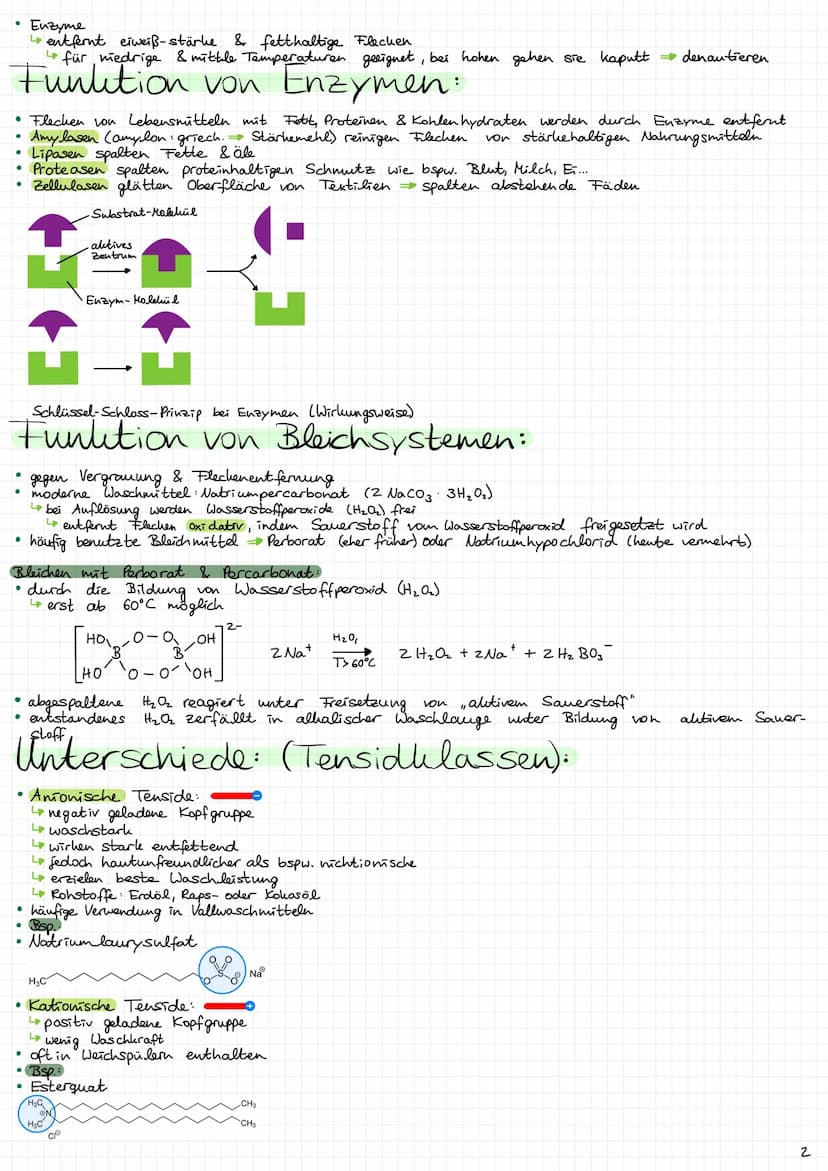 • Enzyme
↳ entfernt eiweiß-stärke & fetthaltige Flecken
↳ für niedrige & mittlle Temperaturen geeignet, bei hohen gehen sie kaputt ⇒ denautieren
Funktion von Enzymen:
• Flecken von Lebensmitteln mit Fett, Proteinen & Kohlenhydraten werden durch Enzyme entfernt
• Amylasen (amylon: griech. ⇒ Stärkemehl) reinigen Flecken von stärkehaltigen Nahrungsmitteln
• Lipasen spalten Fette & Öle
• Proteasen spalten proteinhaltigen Schmutz wie bspw. Blut, Milch, Ei...
• Zellulasen glätten Oberfläche von Textilien ⇒ spalten abstehende Fäden
Substrat-Molekül
aktives
Zentrum
Enzym-Molekül
Schlüssel-Schloss-Prinzip bei Enzymen (Wirkungsweise)
Funktion von Bleichsystemen:
• gegen Vergrauung & Fleckenentfernung
• moderne Waschmittel: Natriumpercarbonat (2 NaCO₃ · 3H₂O₂)
↳ bei Auflösung werden Wasserstoffperoxide (H₂O₂) frei
↳ entfernt Flecken oxidativ, indem Sauerstoff vom Wasserstoffperoxid freigesetzt wird
• häufig benutzte Bleichmittel ⇒ Perborat (eher früher) oder Natriumhypochlorid (heute vermehrt)
Bleichen mit Perborat & Percarbonat:
• durch die Bildung von Wasserstoffperoxid (H₂O₂)
↳ erst ab 60°C möglich
HO O–O OH 2-
B B
HO O–O OH
2 Na⁺ H₂O, T>60°C 2 H₂O₂ + 2Na⁺ + 2 H₂BO₃⁻
• abgespaltene H₂O₂ reagiert unter Freisetzung von „aktivem Sauerstoff"
• entstandenes H₂O₂ zerfällt in alkalischer Waschlauge unter Bildung von aktivem Sauer-
stoff
Unterschiede: (Tensidklassen):
• Anionische Tenside: −
↳ negativ geladene Kopfgruppe
↳ waschstark
↳ wirken stark entfettend
↳ jedoch hautunfreundlicher als bspw. nichtionische
↳ erzielen beste Waschleistung
↳ Rohstoffe: Erdöl, Raps- oder Kokosöl
• häufige Verwendung in Vollwaschmitteln
• Bsp.
• Natriumlaurysulfat
H₃C O O O S O⊖ Na⊕
• Kationische Tenside: +
↳ positiv geladene Kopfgruppe
↳ wenig Waschkraft
• oft in Weichspülern enthalten
• Bsp.:
• Esterquat
H₃C CH₃
⊕N
H₃C CH₃
Cl⊖
2